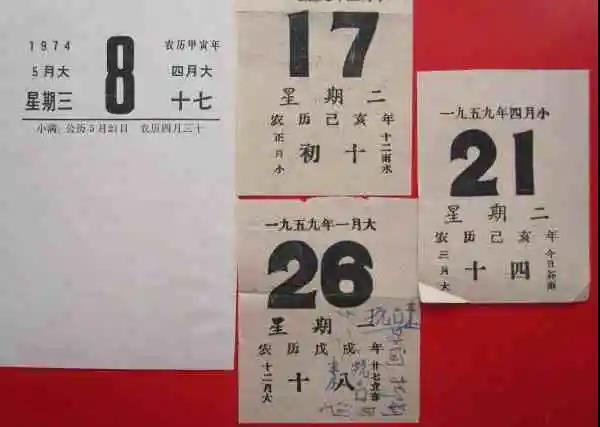 1974
农历甲寅年
5月大
8
四月大
星期三
十七
小满:公历5月21日 农历四月三十
17
星期二
农历己亥年
正月小
初十
十二雨水
一九五九年四月小
21
星期二
农历己亥年
三月大
十四
一九五九年一月大
26
星期
农历戊戌年
十二月大
十八